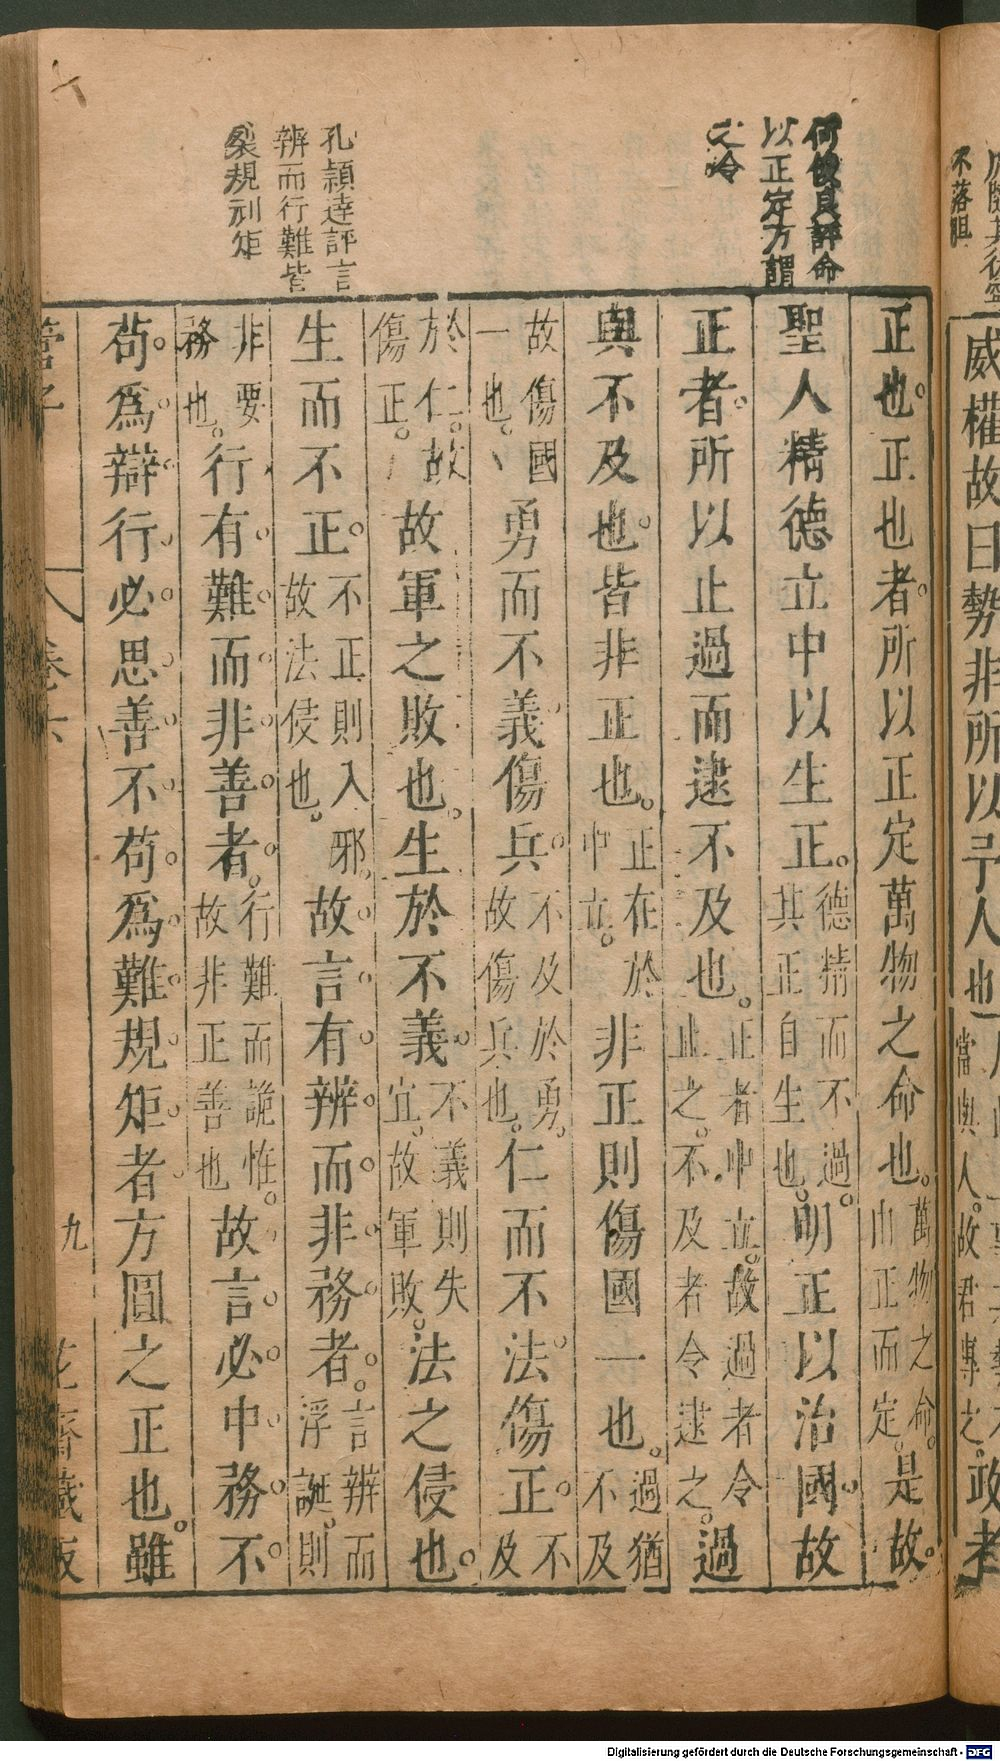 不落胆
威權故曰勢非所以予人也
當與人故君專之
政者
何俊良評命
以正定方謂
之令
孔頴逹評言
辨而行難皆
裂規刓矩
正也正也者所以正定萬物之命也萬物之命巾正而定是故
聖人精德立中以生正德精而不過其正自生也明正以治國故
正者所以止過而逮不及也正者中立故過者令止之不及者令逮之過
與不及也皆非正也正在於中立非正則傷國一也過猶不及
故傷國一也勇而不義傷兵不及於勇故傷兵也仁而不法傷正不及
於仁故傷正故軍之敗也生於不義不義則失宜故軍敗法之侵也
生而不正不正則入邪故法侵也故言有辨而非務者言辨而浮誕則
非要務也行有難而非善者行難而詭恠故非正善也故言必中務不
苟爲辯行必思善不苟爲難規矩者方圓之正也雖
管子
卷六
九
花齋藏板
Digitalisierung gefördert durch die Deutsche Forschungsgemeinschaft - DFG